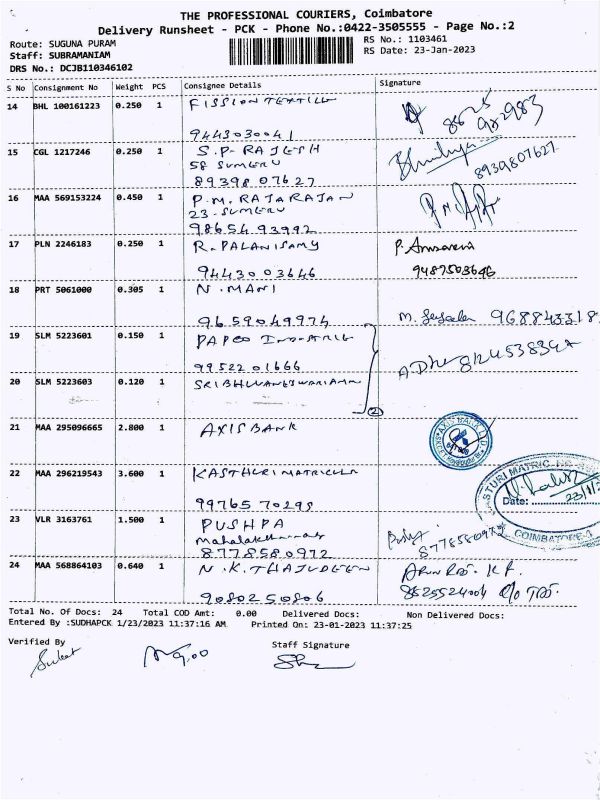 THE PROFESSIONAL COURIERS, Coimbatore
Delivery Runsheet - PCK - Phone No.:0422-3505555 - Page No.:2
Route: SUGUNA PURAM
RS No.: 1103461
Staff: SUBRAMANIAM
RS Date: 23-Jan-2023
DRS No.: DCJB110346102
S No Consignment No Weight PCS Consignee Details Signature
14 BHL 100161223 0.250 1 FISSION TEXTILE
9443030041
15 CGL 1217246 0.250 1 S.P. RAJESH
58 SUMERU
89398 07627 8939807627
16 MAA 569153224 0.450 1 P.M. RAJARAJAN
23. SUMERU
98654 93992
17 PLN 2246183 0.250 1 R. PALANISAMY
94430 03646 9487503646
18 PRT 5061000 0.305 1 N. MANI
9659049974 M. 968843318
19 SLM 5223601 0.150 1
99522 01666
20 SLM 5223603 0.120 1
(2)
21 MAA 295096665 2.800 1 AXIS BANK
AXIS BANK LTD
22 MAA 296219543 3.600 1
99765 70298
STURI MATRIC
Date: 23/1/
COIMBATORE
23 VLR 3163761 1.500 1 PUSHPA
8778580972 8778580972
24 MAA 568864103 0.640 1 N.K. THAJUDEEN
9080250806 8825524004
Total No. Of Docs: 24 Total COD Amt: 0.00 Delivered Docs: Non Delivered Docs:
Entered By :SUDHAPCK 1/23/2023 11:37:16 AM Printed On: 23-01-2023 11:37:25
Verified By Staff Signature
9.00